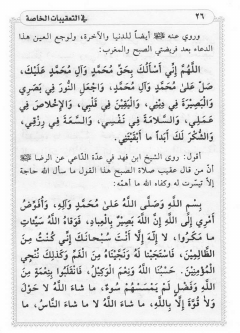 ٢٦
في التعقيبات الخاصة
وروي عنه ﷺ أيضاً للدنيا والآخرة، ولوجع العين هذا
الدعاء بعد فريضتي الصبح والمغرب:
اللَّهُمَّ إِنِّي أَسْأَلُكَ بِحَقِّ مُحَمَّدٍ وَآلِ مُحَمَّدٍ عَلَيْكَ،
صَلِّ عَلَىٰ مُحَمَّدٍ وَآلِ مُحَمَّدٍ، وَاجْعَلِ النُّورَ فِي بَصَرِي
وَالبَصِيرَةَ فِي دِينِي، وَاليَقِينَ فِي قَلْبِي، وَالإِخْلَاصَ فِي
عَمَلِي، وَالسَّلَامَةَ فِي نَفْسِي، وَالسَّعَةَ فِي رِزْقِي،
وَالشُّكْرَ لَكَ أَبَداً مَا أَبْقَيْتَنِي.
أقول: روى الشيخ ابن فهد في عدّة الداعي عن الرضا
أنّ من قال عقيب صلاة الصبح هذا القول ما سأل الله حاجة
إلّا تيسّرت له وكفاه الله ما أهمّه:
بِسْمِ اللَّهِ وَصَلَّى اللَّهُ عَلَىٰ مُحَمَّدٍ وَآلِهِ، وَأُفَوِّضُ
أَمْرِي إِلَى اللَّهِ إِنَّ اللَّهَ بَصِيرٌ بِالْعِبَادِ، فَوَقَاهُ اللَّهُ سَيِّئَاتِ
مَا مَكَرُوا، لَا إِلَهَ إِلَّا أَنْتَ سُبْحَانَكَ إِنِّي كُنْتُ مِنَ
الظَّالِمِينَ، فَاسْتَجَبْنَا لَهُ وَنَجَّيْنَاهُ مِنَ الْغَمِّ وَكَذَلِكَ نُنْجِي
الْمُؤْمِنِينَ، حَسْبُنَا اللَّهُ وَنِعْمَ الْوَكِيلُ، فَانْقَلَبُوا بِنِعْمَةٍ مِنَ
اللَّهِ وَفَضْلٍ لَمْ يَمْسَسْهُمْ سُوءٌ، مَا شَاءَ اللَّهُ لَا حَوْلَ
وَلَا قُوَّةَ إِلَّا بِاللَّهِ، مَا شَاءَ اللَّهُ لَا مَا شَاءَ النَّاسُ، مَا